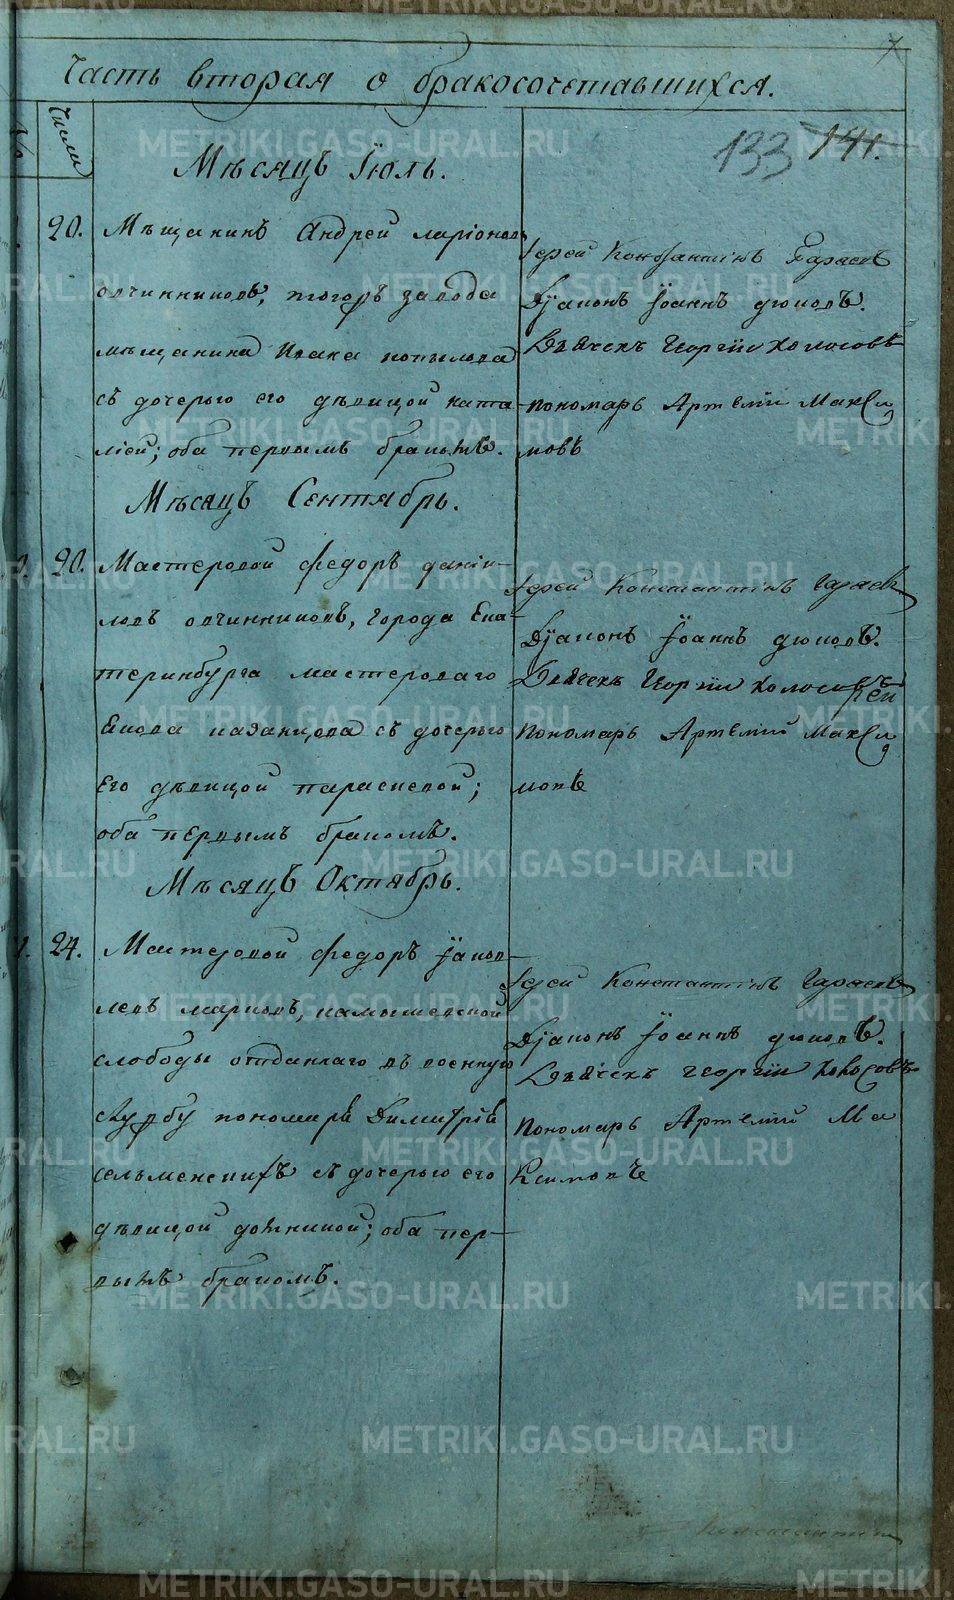 Часть вторая о бракосочетавшихся.
Числа
133 141.
Мѣсяцъ Іюль.
20. Мѣщанинъ Андрей Ларіоновъ
Овчинниковъ, тогожъ завода
мѣщанина Исака Копылова
съ дочерью его дѣвицой Ната-
ліей; оба первымъ бракомъ.
Іерей Константинъ
Дьяконъ Іоаннъ Дюковъ.
Дьячекъ Георгій Колосовъ
пономарь Артемій Макси
мовъ
Мѣсяцъ Сентябрь.
20. Мастеровой Федоръ Дании-
ловъ Овчинниковъ, города Ека-
теринбурга мастероваго
Казанцова съ дочерью
его дѣвицой Параскевой;
оба первымъ бракомъ.
Іерей Константинъ
Дьяконъ Іоаннъ Дюковъ.
Дьячекъ Георгій
Пономарь Артемій Макси
мовъ
Мѣсяцъ Октябрь.
24. Мастеровой Федоръ Іаков-
левъ Марковъ, Камышевской
слободы отданнаго въ военную
службу пономаря Димитрія
съ дочерью его
дѣвицой; оба пер-
вымъ бракомъ.
Іерей Константинъ
Дьяконъ Іоаннъ Дюковъ.
Дьячекъ Георгій Колосовъ
Пономарь Артемій Ма
ксимовъ
METRIKI.GASO-URAL.RU